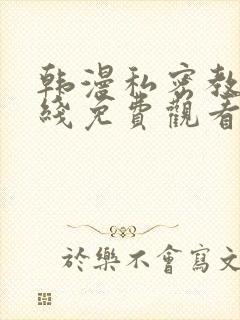 韩漫私密教
綫免費觀看
於樂不會寫文